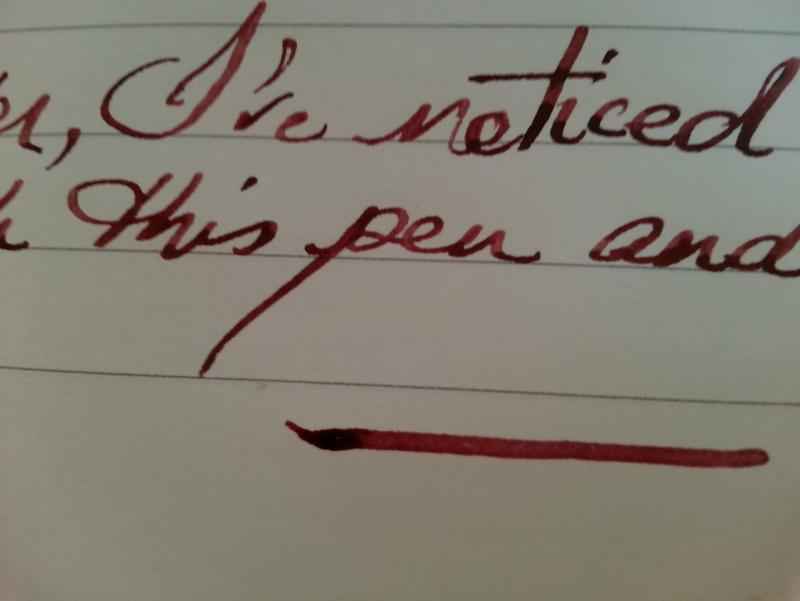 I've noticed
this pen and